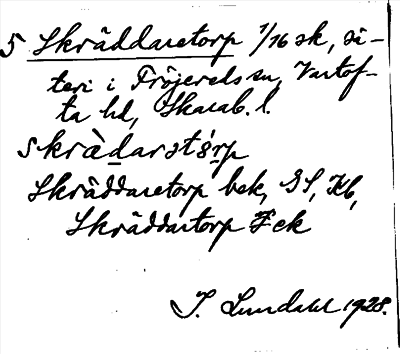 5 Skräddaretorp 1/16 sk, sä-
teri i Fröjereds sn, Vartof-
ta hd, Skarab. l.
skrädarstǫrp
Skräddaretorp bek, GS, Kb,
Skräddartorp Eek
I. Lundahl 1928.